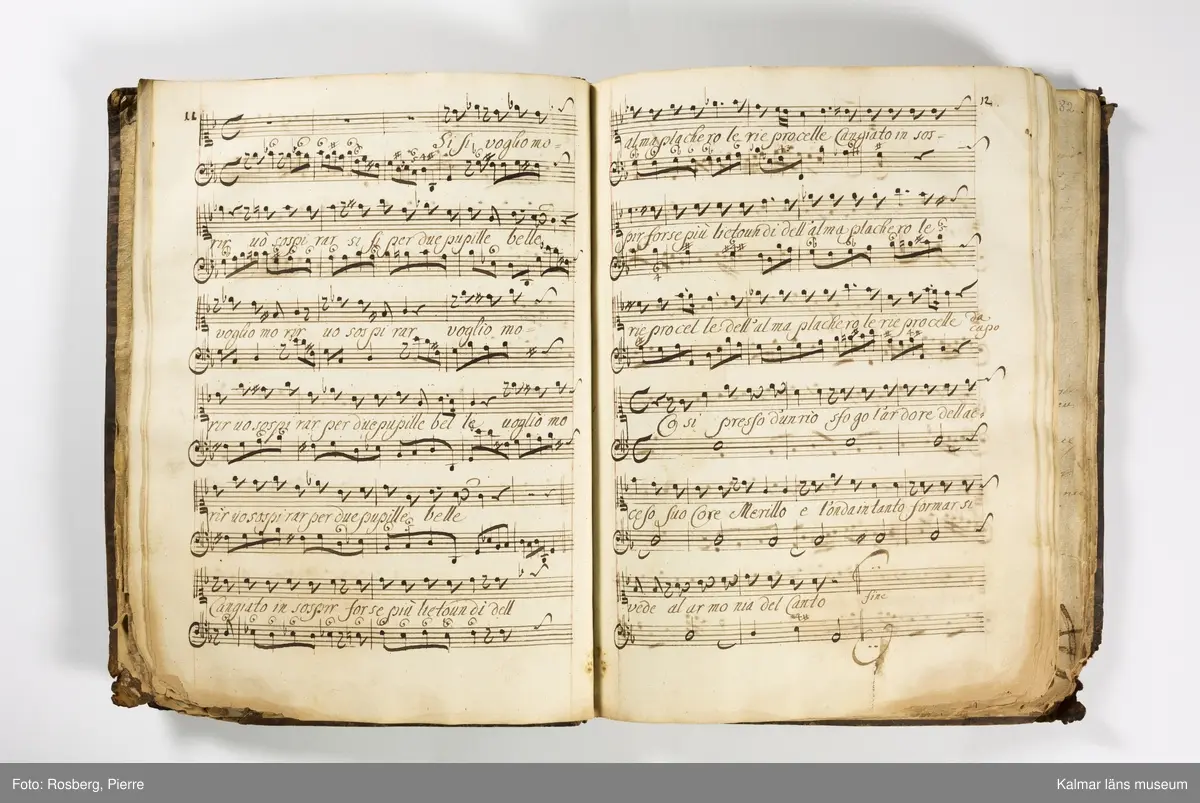 11
Si si, voglio mo-
rir uò sospi rar si si per due pupille belle
voglio mo rir uo sos pi rar voglio mo-
rir uo sospi rar per due pupille bel le uoglio mo
rir uo sospi rar per due pupille belle
Cangiato in sospir forse più lieto un di dell
12
al ma placherò le rie procelle Cangiato in sos-
pir forse più lieto un di dell'al ma placherò le
rie procel le dell'al ma placherò le rie procelle da capo
Co si presso d'un rio sfogo l'ardore dell ac-
ceso suo Core Merillo e l'onda in tanto formar si
vede al ar mo nia del Canto fine
82
Foto: Rosberg, Pierre
Kalmar läns museum